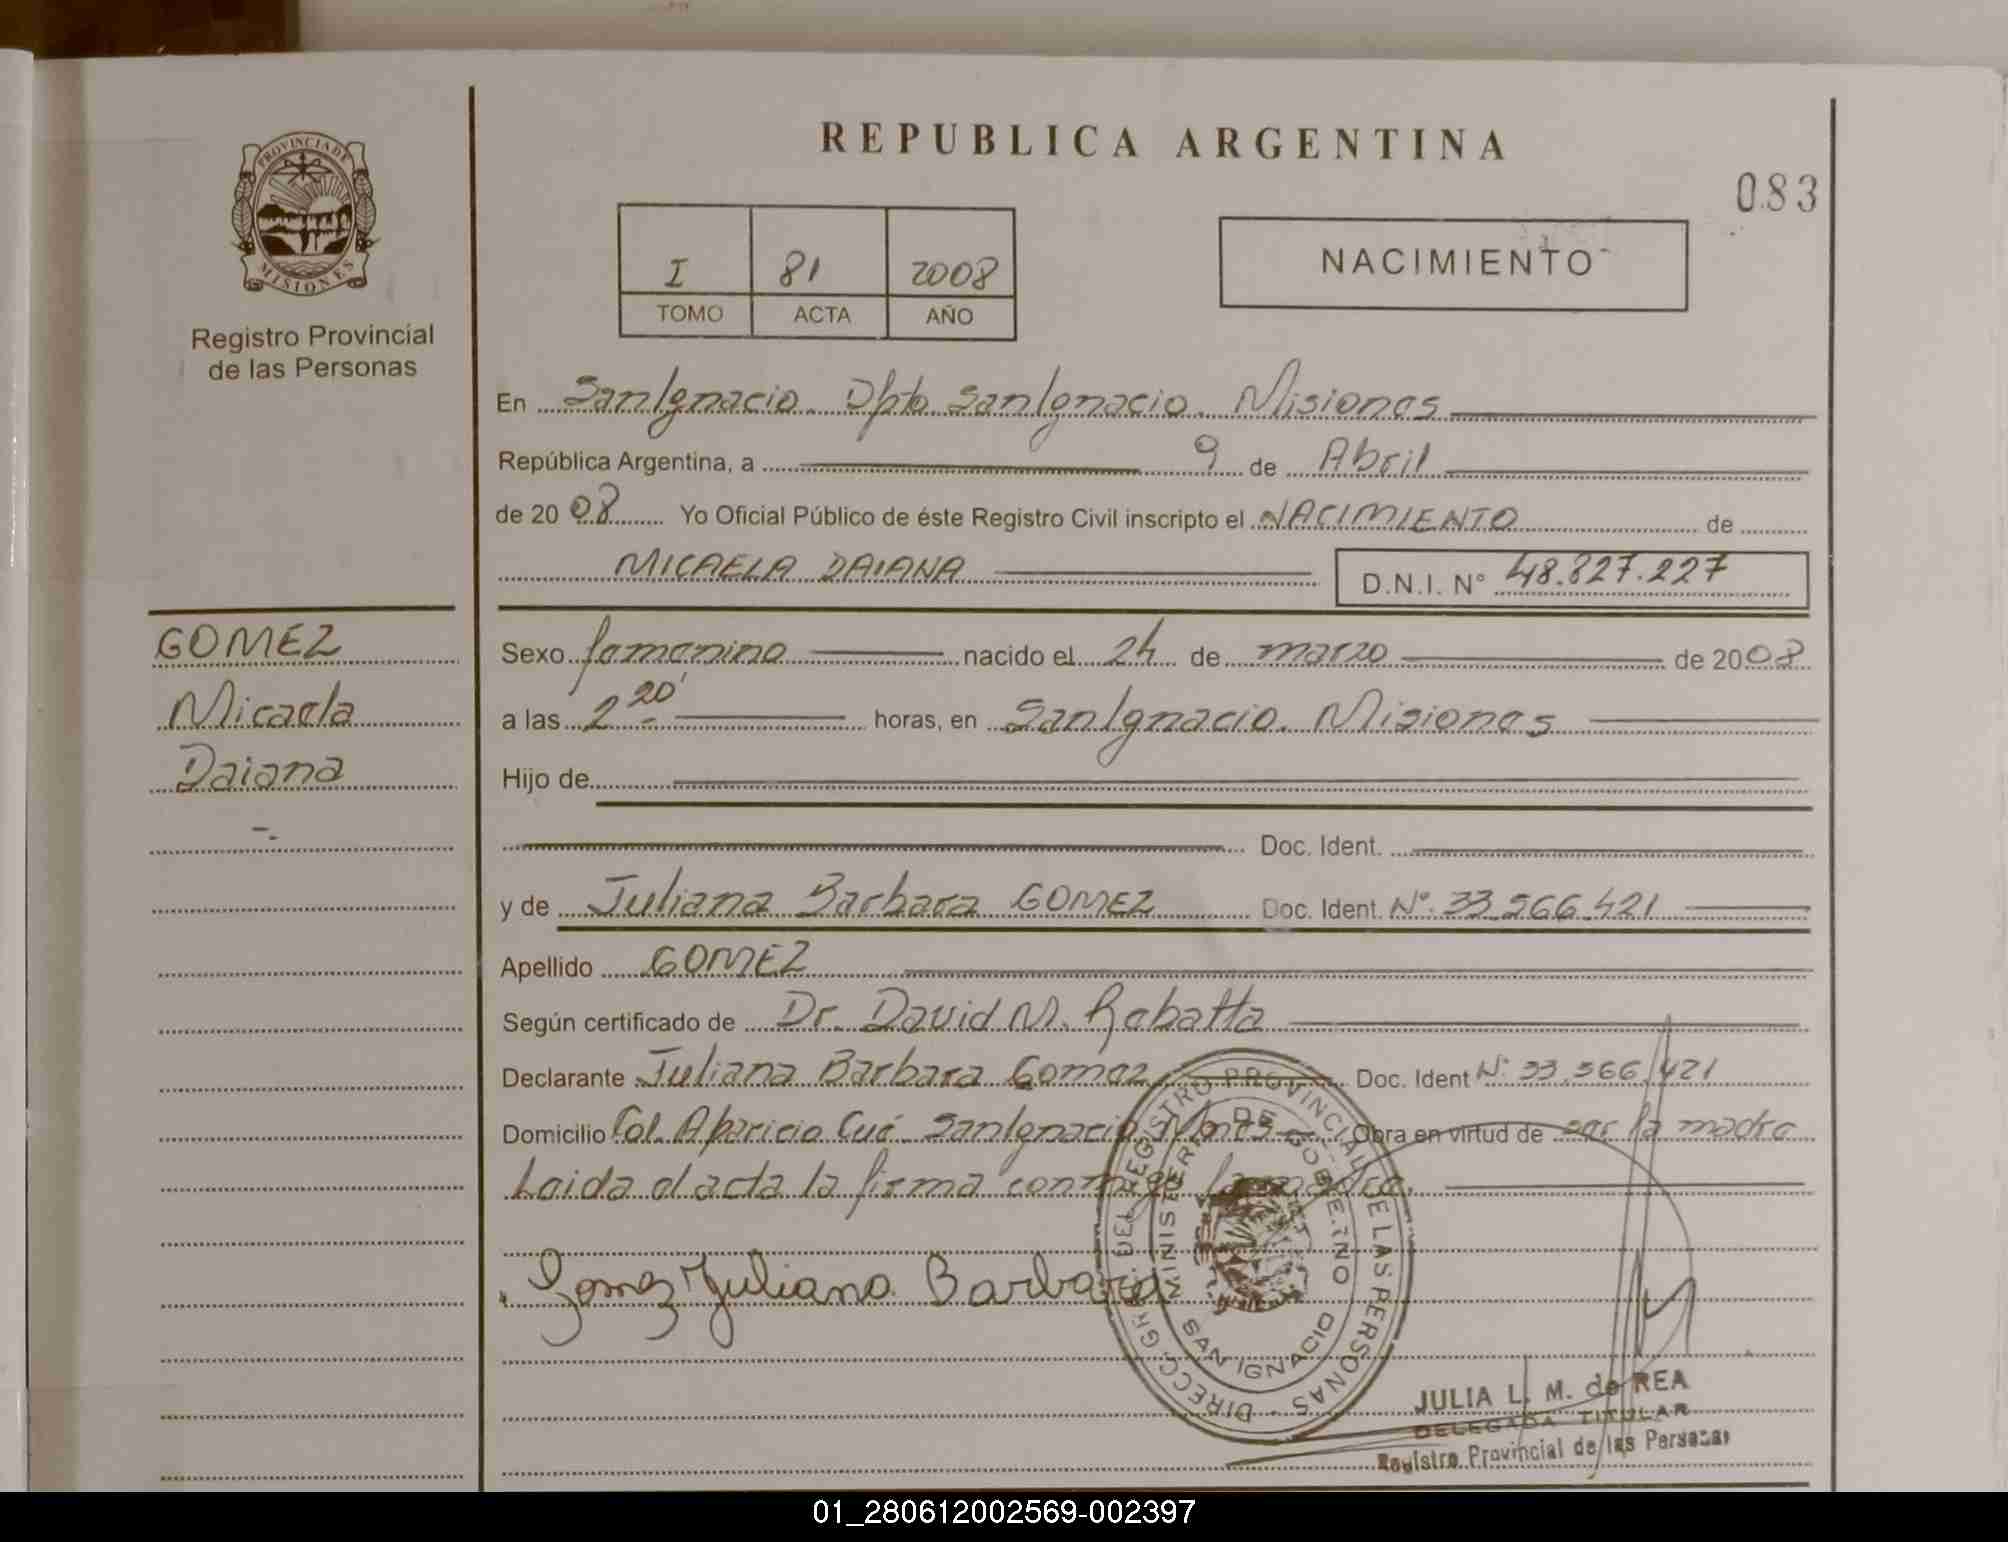 REPUBLICA ARGENTINA
083
PROVINCIA DE
MISIONES
Registro Provincial
de las Personas
I 81 2008
TOMO ACTA AÑO
NACIMIENTO
En San Ignacio. Dpto San Ignacio. Misiones
República Argentina, a 9 de Abril
de 2008 Yo Oficial Público de éste Registro Civil inscripto el NACIMIENTO de
MICAELA DAIANA D.N.I. N° 48.827.227
GOMEZ
Micaela
Daiana
Sexo femenino nacido el 24 de marzo de 2008
a las 2 20' horas, en San Ignacio. Misiones
Hijo de
Doc. Ident.
y de Juliana Barbara GOMEZ Doc. Ident. N°. 33.566.421
Apellido GOMEZ
Según certificado de Dr. David M. Rebatta
Declarante Juliana Barbara Gomez Doc. Ident N°. 33.566.421
Domicilio Col. Aparicio Cué. San Ignacio Mnes Obra en virtud de ser la madre
Leida el acta la firma conmigo la madre.
Gomez Juliana Barbara
DIRECC. GRAL. DEL REGISTRO PROVINCIAL DE LAS PERSONAS
MINISTERIO DE GOBIERNO
SAN IGNACIO
JULIA L. M. de REA
DELEGADA TITULAR
Registro Provincial de las Personas
01_280612002569-002397